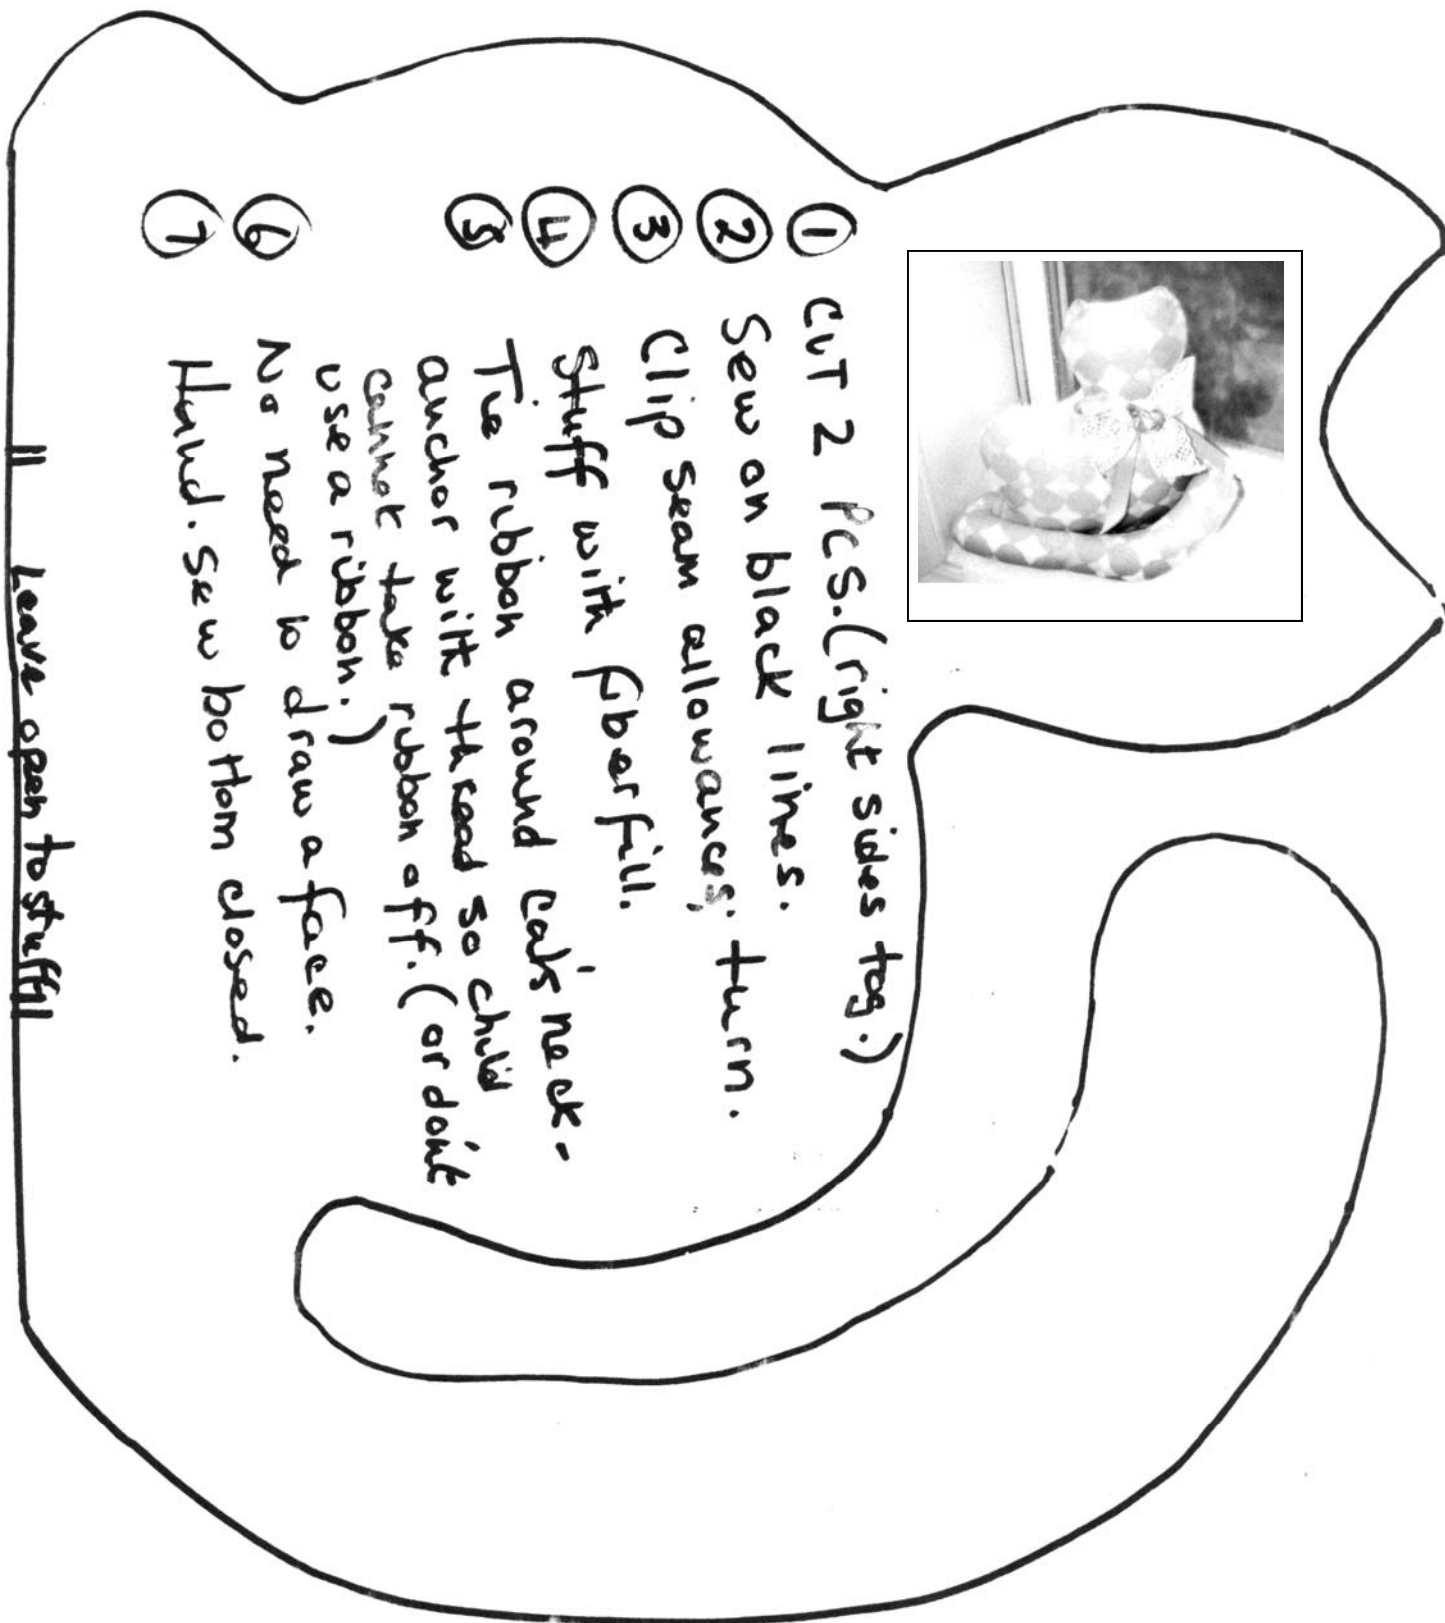 ① CUT 2 PCS. (right sides tog.)
② Sew on black lines.
③ Clip seam allowances; turn.
④ Stuff with fiberfill.
⑤ Tie ribbon around cat's neck -
anchor with thread so child
cannot take ribbon off. (or don't
use a ribbon.)
⑥ No need to draw a face.
⑦ Hand. sew bottom closed.
|| Leave open to stuff ||